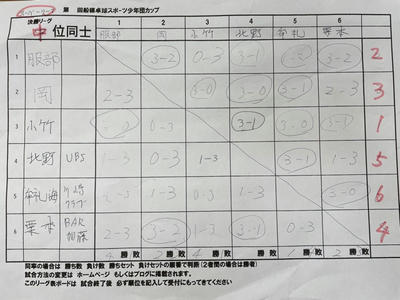 スーパーリーグ 第 回船穂卓球スポーツ少年団カップ
決勝リーグ 1 2 3 4 5 6
中位同士 服部 岡 小竹 北野 牟礼 栗本
1 服部 3-2 0-3 3-1 3-2 2
2 岡 2-3 3-0 3-0 3-1 2-3 3
3 小竹 0-3 3-1 3-1 1
4 北野 UBS 1-3 0-3 1-3 3-1 1-3 5
5 牟礼 1-3 0-3 1-3 3-0 6
6 栗本 BAR 加藤 2-3 3-2 1-3 3-1 0-3 4
勝 敗 勝 敗 勝 敗 勝 敗 勝 敗 勝 敗
同率の場合は 勝ち数 負け数 勝ちセット 負けセットの順番で判断(2者間の場合は勝者)
試合方法の変更は ホームページ もしくはブログに掲載されます。
このリーグ表ボードは 試合終了後 必ず順位を記入して受付にもってきてください